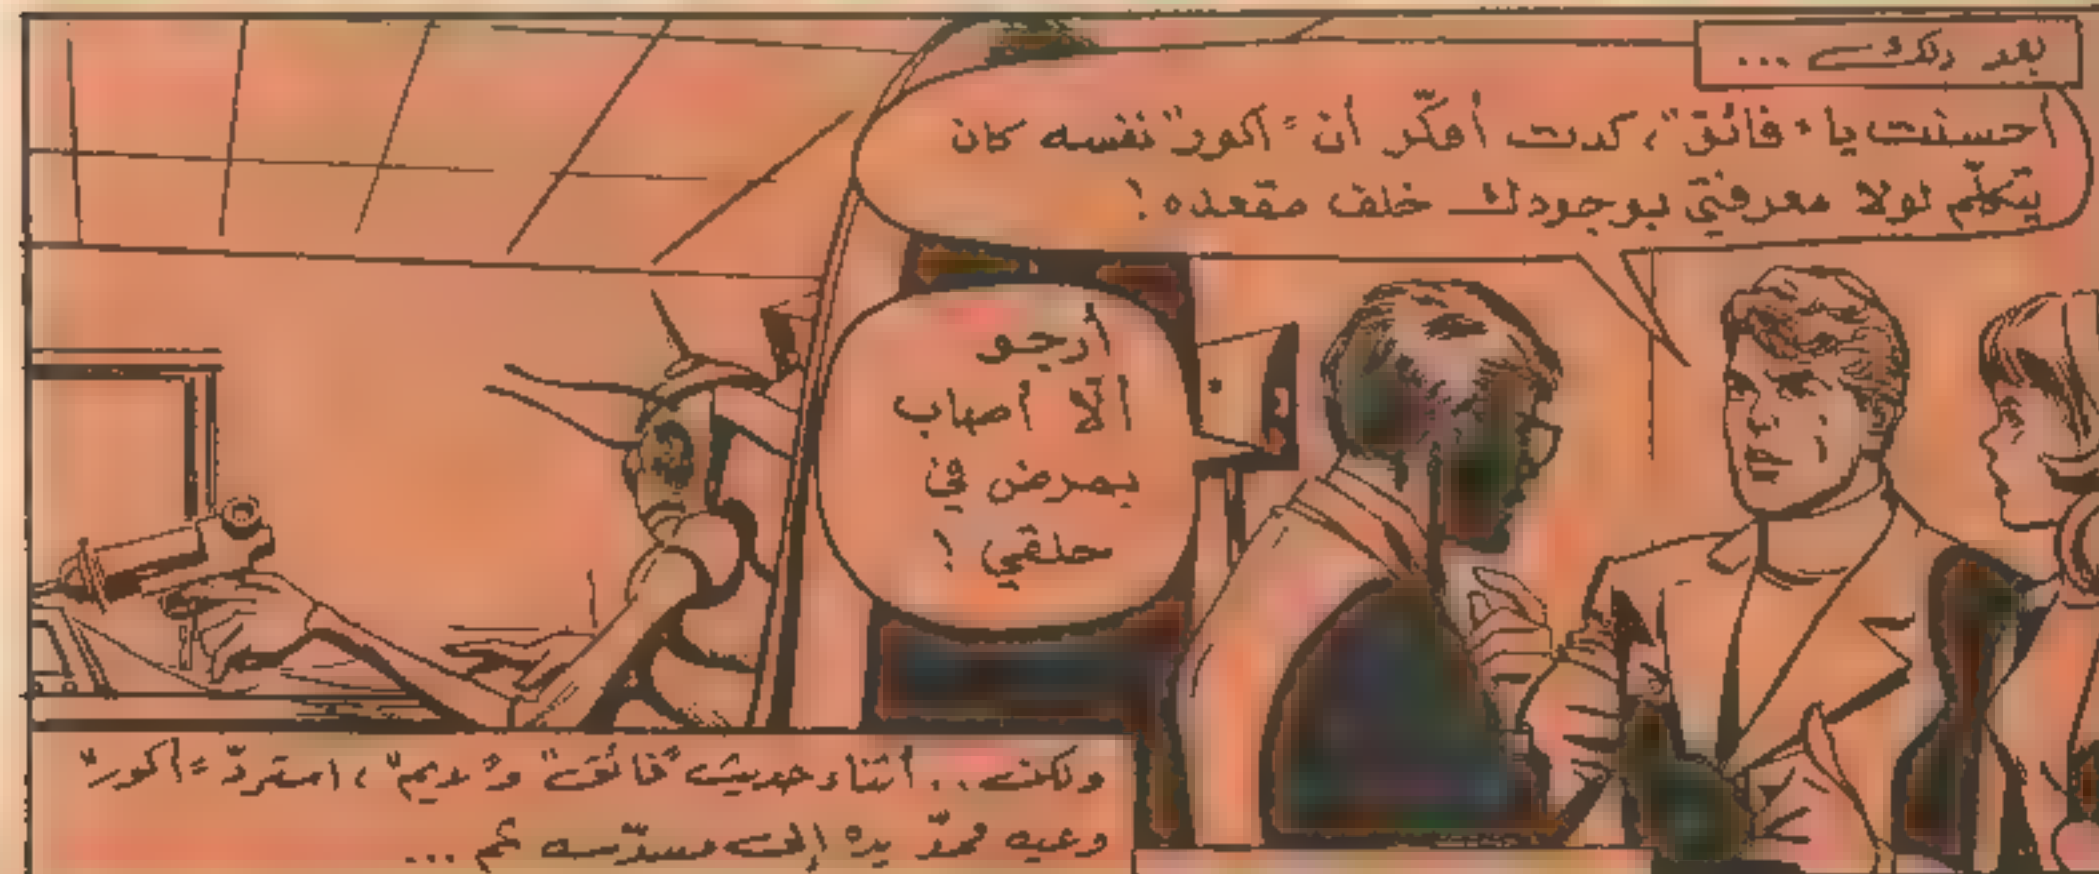 بعد ذلك ...
أحسنت يا "فائق"، كدت أفكّر أن "أكور" نفسه كان
يتكلّم لولا معرفتي بوجودك خلف مقعده !
أرجو
ألّا أصاب
بمرض في
حلقي !
ولكن .. أثناء حديث "فائق" و"ديم"، استردّ "أكور"
وعيه فمدّ يده إلى مسدّسه ثم ...